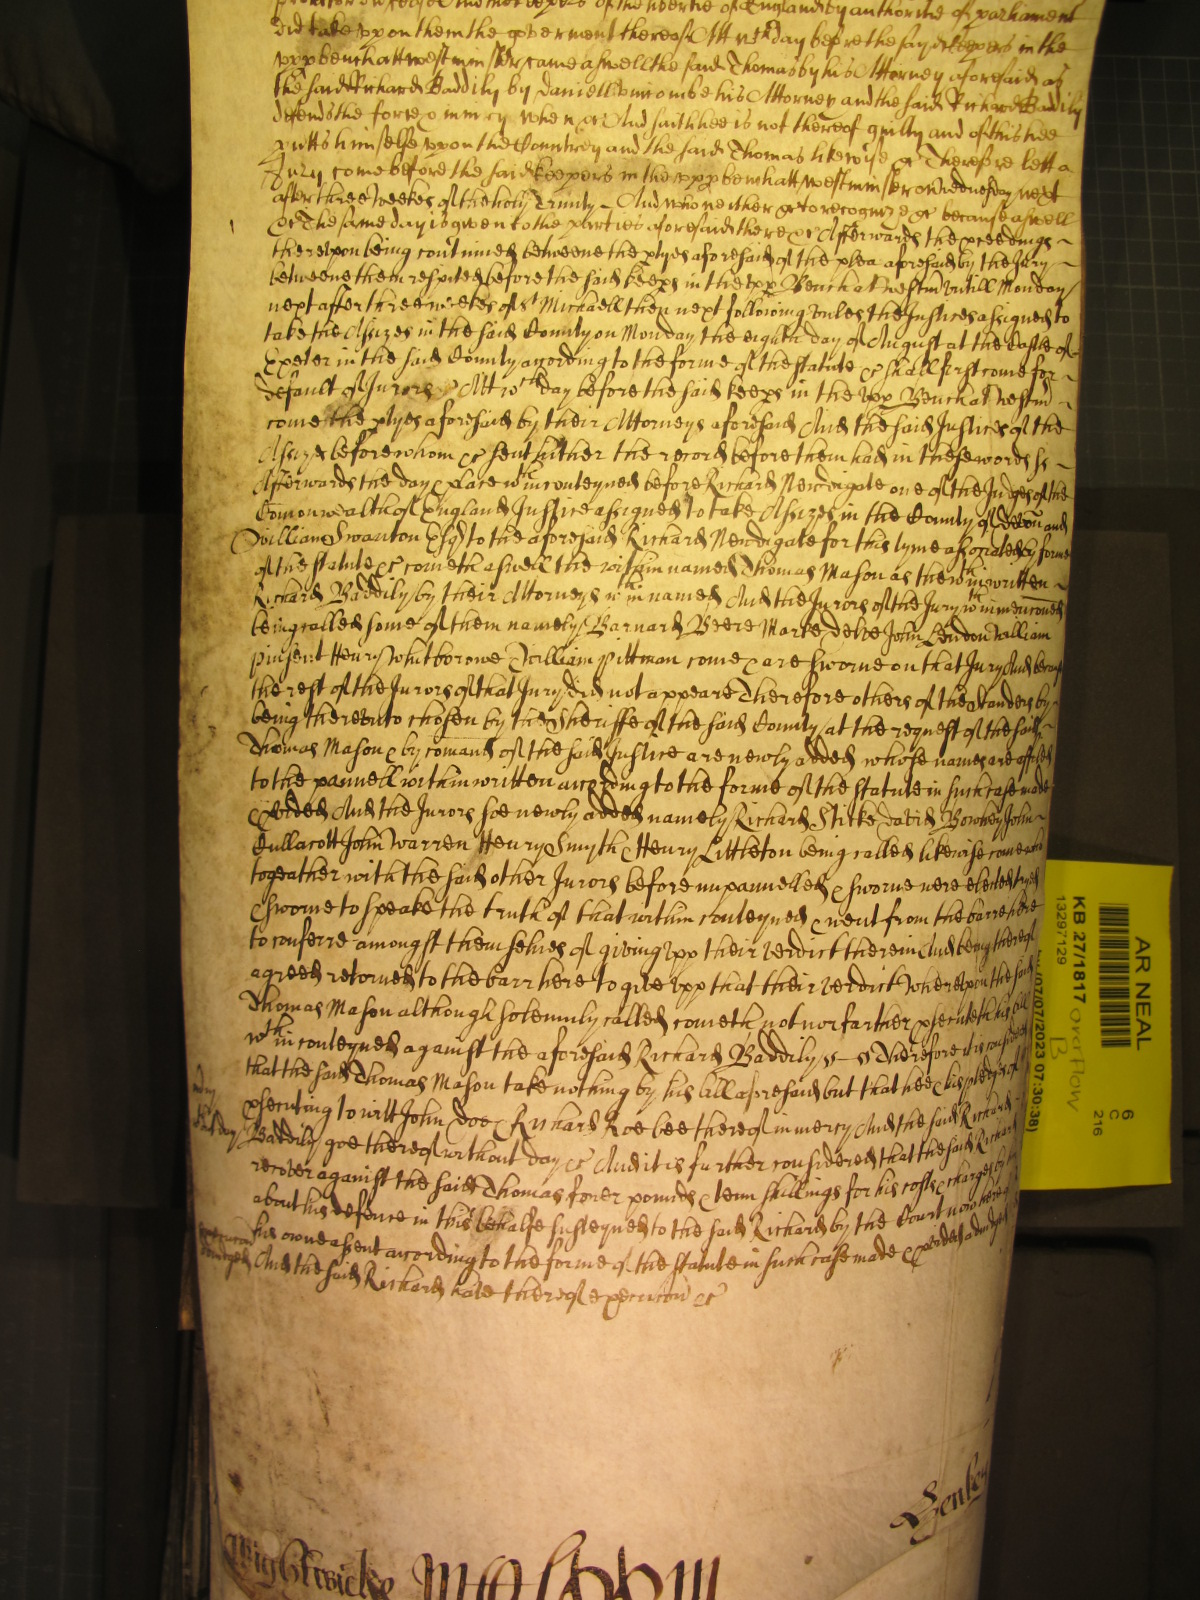 did take vpon them the goverment thereof Att wch day before the say'd keepers in the
vpp bench att westminster came aswell the said Thomas by his Attorney aforesaid as
the said Richard Baddily by Daniell his Attorney and the said Richard Baddily
defends the force & iniury when &c And saith hee is not thereof guilty and of this hee
putts himselfe vpon the Countrey and the said Thomas likewise &c Therefore lett a
Jury come before the said keepers in the vpp bench att westminster on wednesday next
after three weekes of the holy Trinity And who neither &c to recognize &c because aswell
&c The same day is given to the parties aforesaid there &c Afterwards the proceedings
therevpon being continued betweene the ptyes aforesaid of the plea aforesaid by the Jury
betweene them respited before the said keeps in the vpp Bench at westmr vntill Monday
next after three weekes of St Michaell then next following vnles the Justices assigned to
take the Assizes in the said County on Monday the eighth day of August at the Castle of
Exeter in the said County according to the forme of the statute &c shall first come for
default of Jurors &c Att wch day before the said keeps in the vpp Bench at westmr
come the ptyes aforesaid by their Attorneys aforesaid And the said Justices of the
Assizes before whom &c sent hither the record before them had in these words ss
Afterwards the day & place wthin conteyned before Richard Newdigate one of the Judges of the
Comonwealth of England Justice assigned to take Assizes in the County of Devon and
William Swanton Esqr to the aforesaid Richard Newdigate for this tyme associated by forme
of the statute &c cometh aswell the within named Thomas Mason as the wthin written
Richard Baddily by their Attorneys wthin named And the Jurors of the Jury wthin menconed
being called some of them namely Barnard Beere Marke John Lendon William
Pinsent Henry Whitborowe William Pittman come & are sworne on that Jury And because
the rest of the Jurors of that Jury did not appeare Therefore others of the standers by
being therevnto chosen by the Sheriffe of the said County at the request of the said
Thomas Mason & by comand of the said Justice are newly added whose names are affiled
to the pannell within written according to the forme of the statute in such case made
& pvided And the Jurors soe newly added namely Richard Sticke David Bowhey John
Cullacott John Warren Henry Smyth & Henry Littleton being called likewise come who
togeather with the said other Jurors before impannelled & sworne were elected tryed
& sworne to speake the truth of that within conteyned & went from the barre here
to conferre amongst themselves of giving vpp their verdict therein And being thereof
agreed retorned to the barr here to give vpp that their verdict Wherevpon the said
Thomas Mason although solemnly called cometh not nor farther psecuteth his bill
wthin conteyned against the aforesaid Richard Baddily ss Therefore it is considered
that the said Thomas Mason take nothing by his bill aforesaid but that hee & his pledges of
psecuting to witt John Doe & Richard Roe bee thereof in mercy And the said Richard
Baddily goe thereof without day &c And it is further considered that the said Richard
recover against the said Thomas fower pounds & tenn shillings for his costs & charges by him
about his defence in this behalfe susteyned to the said Richard by the Court now here
his owne assent according to the forme of the statute in such case made & pvided adiudged
And the said Richard have thereof execucon &c
Wightwicke
AR NEAL
KB 27/1817
13297129
overflow
B
6
C
216
(07/07/2023 07:30:38)